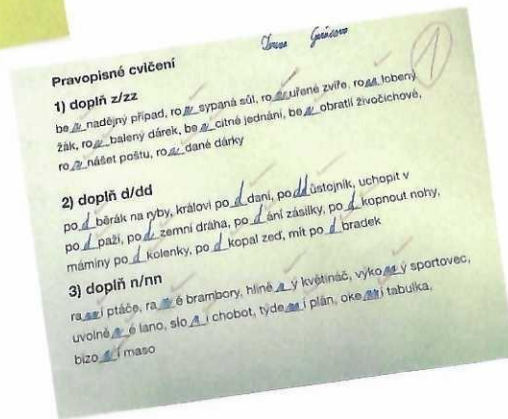 Pravopisné cvičení
1) doplň z/zz
be z nadějný případ, ro z sypaná sůl, ro zz uřené zvíře, ro zz lobený
žák, ro z balený dárek, be z citné jednání, be z obratlí živočichové,
ro z nášet poštu, ro z dané dárky
2) doplň d/dd
po d běrák na ryby, královi po d daní, po dd ůstojník, uchopit v
po d paží, po d zemní dráha, po d ání zásilky, po d kopnout nohy,
máminy po d kolenky, po d kopal zeď, mít po d bradek
3) doplň n/nn
ra nn í ptáče, ra n é brambory, hlině n ý květináč, výko nn ý sportovec,
uvolně n é lano, slo n í chobot, týde nn í plán, oke nn í tabulka,
bizo n í maso
1